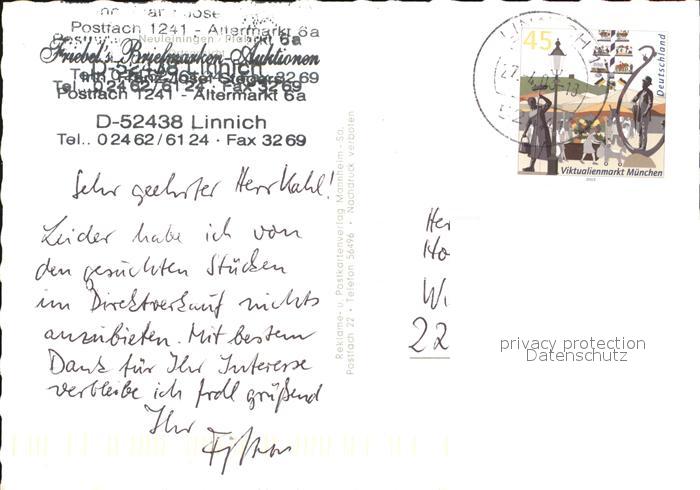 Postfach 1241 - Altermarkt 6a
Friebel's Briefmarken-Auktionen
D-52438 Linnich
Tel.. 02462/6124 · Fax 3269
Postfach 1241 - Altermarkt 6a
D-52438 Linnich
Tel.. 02462/6124 · Fax 3269
Sehr geehrter Herr Kahl!
Leider habe ich von
den gesuchten Stücken
im Direktverkauf nichts
anzubieten. Mit bestem
Dank für Ihr Interesse
verbleibe ich froll grüßend
Ihr
Reklame- u. Postkartenverlag Mannheim - So.
Postfach 22 · Telefon 56496 · Nachdruck verboten
45
Deutschland
Viktualienmarkt München
LINNICH
Her
Ho
Wi
22
privacy protection
Datenschutz